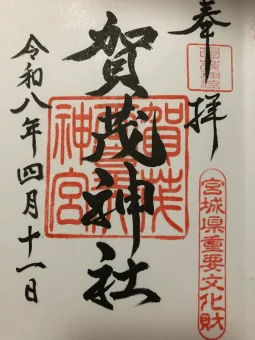 奉拝
賀茂神社
宮城県重要文化財
令和八年四月十一日